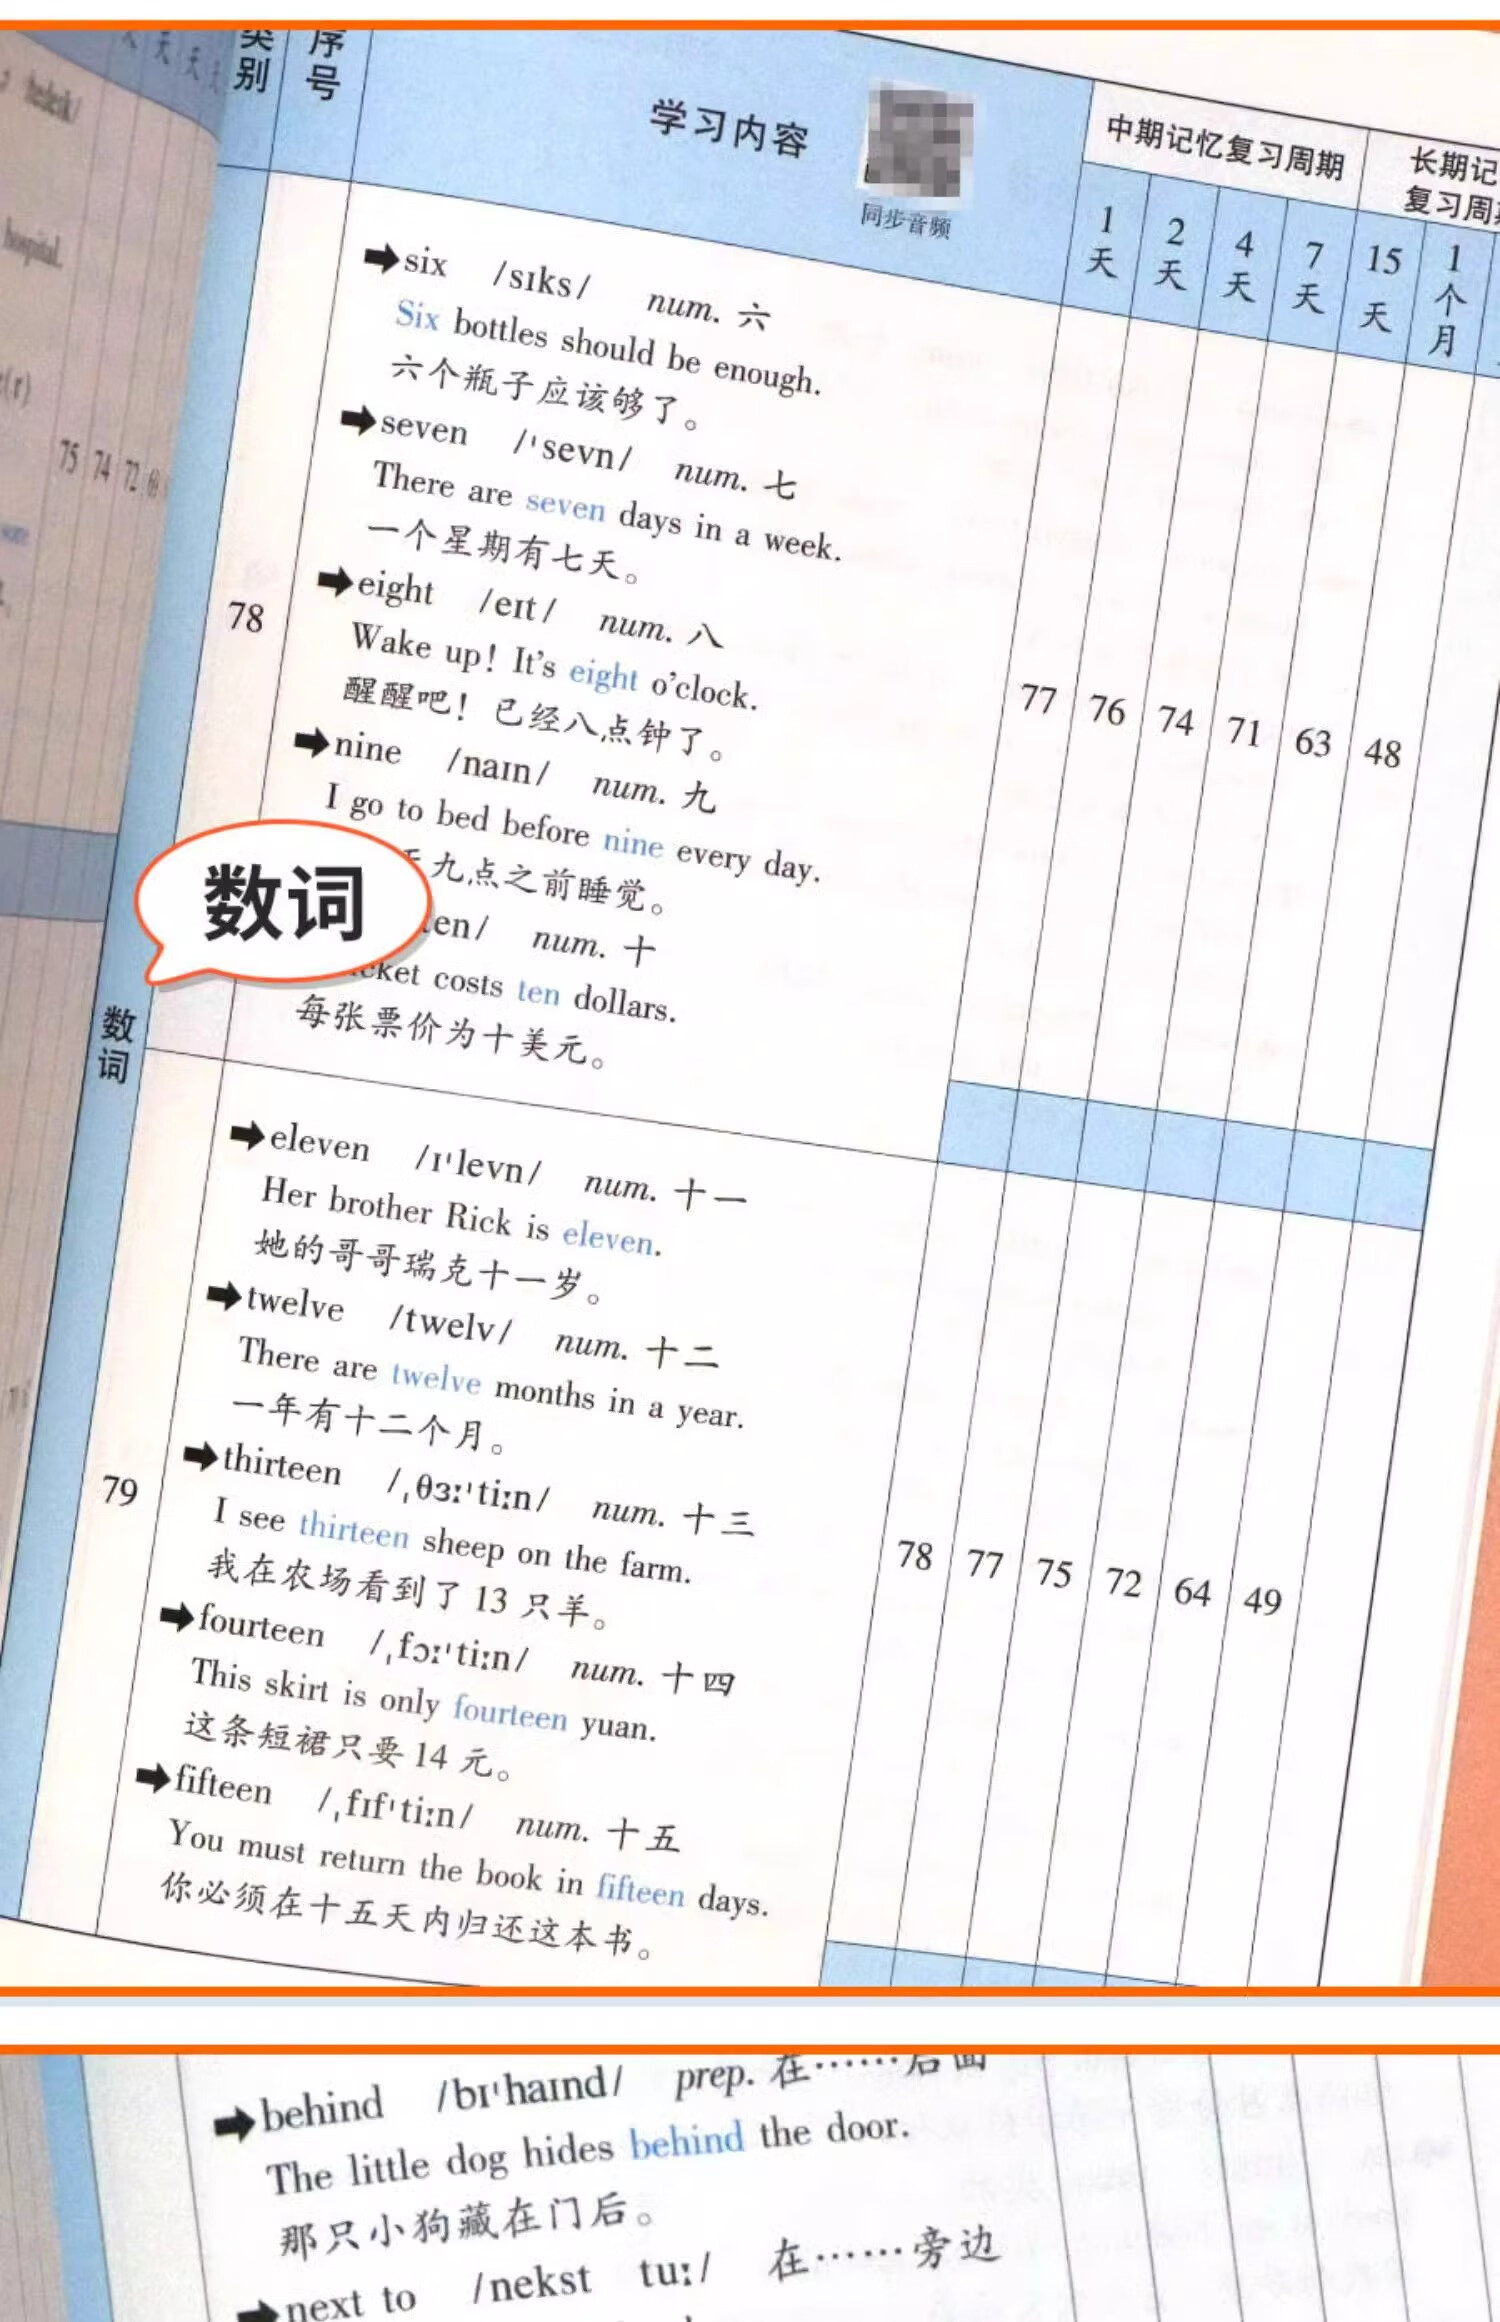 类别
序号
学习内容
同步音频
中期记忆复习周期
长期记
复习周
1天
2天
4天
7天
15天
1个月
hospital.
75 74 72
数词
数词
78
six /sɪks/ num. 六
Six bottles should be enough.
六个瓶子应该够了。
seven /ˈsevn/ num. 七
There are seven days in a week.
一个星期有七天。
eight /eɪt/ num. 八
Wake up! It's eight o'clock.
醒醒吧！已经八点钟了。
nine /naɪn/ num. 九
I go to bed before nine every day.
九点之前睡觉。
ten/ num. 十
costs ten dollars.
每张票价为十美元。
77 76 74 71 63 48
79
eleven /ɪˈlevn/ num. 十一
Her brother Rick is eleven.
她的哥哥瑞克十一岁。
twelve /twelv/ num. 十二
There are twelve months in a year.
一年有十二个月。
thirteen /ˌθɜːˈtiːn/ num. 十三
I see thirteen sheep on the farm.
我在农场看到了 13 只羊。
fourteen /ˌfɔːˈtiːn/ num. 十四
This skirt is only fourteen yuan.
这条短裙只要 14 元。
fifteen /ˌfɪfˈtiːn/ num. 十五
You must return the book in fifteen days.
你必须在十五天内归还这本书。
78 77 75 72 64 49
behind /bɪˈhaɪnd/ prep. 在……后面
The little dog hides behind the door.
那只小狗藏在门后。
next to /nekst tuː/ 在……旁边